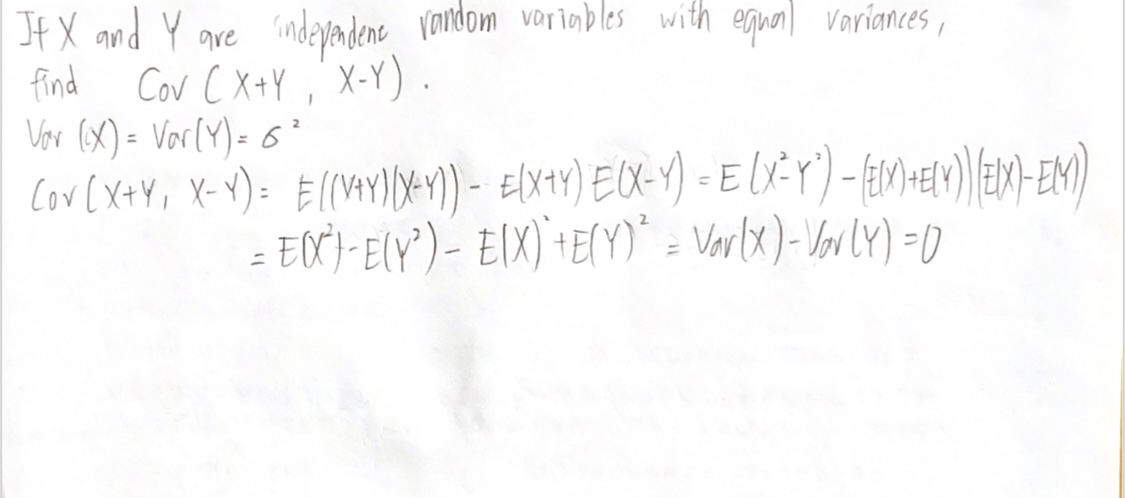 If X and Y are independent random variables with equal variances,
find Cov ( X+Y , X-Y ) .
Var (X) = Var(Y) = σ²
Cov ( X+Y, X-Y) = E((X+Y)(X-Y)) - E(X+Y) E(X-Y) = E (X²-Y²) - (E(X)+E(Y))(E(X)-E(Y))
= E(X²) - E(Y²) - E(X)² + E(Y)² = Var(X) - Var(Y) = 0